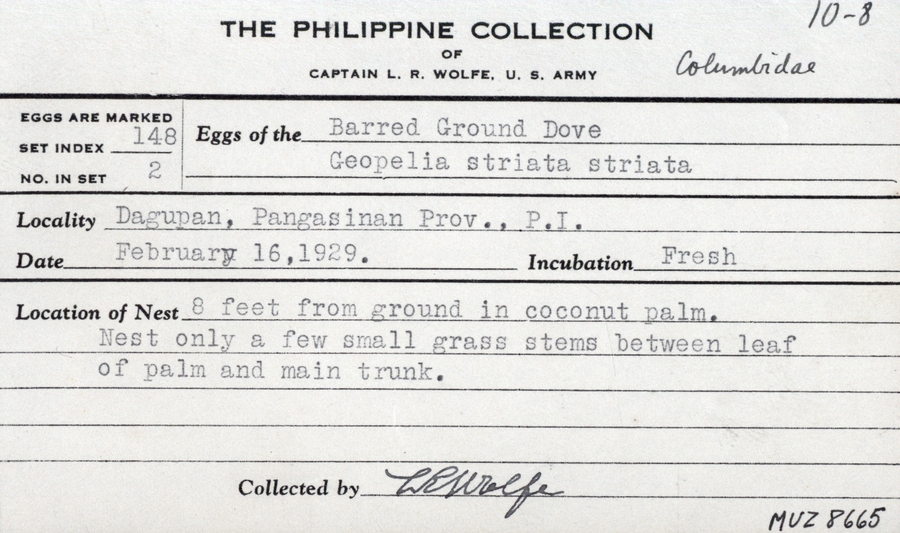 10-8
THE PHILIPPINE COLLECTION
OF
CAPTAIN L. R. WOLFE, U. S. ARMY
Columbidae
EGGS ARE MARKED
SET INDEX 148
NO. IN SET 2
Eggs of the Barred Ground Dove
Geopelia striata striata
Locality Dagupan, Pangasinan Prov., P.I.
Date February 16,1929. Incubation Fresh
Location of Nest 8 feet from ground in coconut palm.
Nest only a few small grass stems between leaf
of palm and main trunk.
Collected by LRWolfe
MVZ 8665